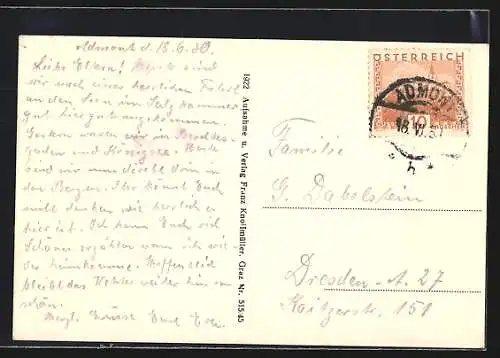 Admont d. 15.6.30.
Liebe Eltern! Heute sind
wir nach einer herrlichen Fahrt
an den Seen im Salzkammer
gut hier gut angekommen.
Gestern waren wir in Berchtes-
gaden und Königsee. Heute
sind wir nun direkt drin in
den Bergen. Ihr könnt Euch
nicht denken wie herrlich es
hier ist. Ich kann Euch viel
Schönes erzählen wenn ich wie-
der heimkomme. Hoffentlich
bleibt das Wetter weiter hin so
schön.
Herzl. Grüsse Eure
1922 Aufnahme u. Verlag Franz Knollmüller, Graz Nr. 51545
ÖSTERREICH
10
ADMONT
Familie
G. Dabelstein
Dresden-A. 27
Kaitzerstr. 151